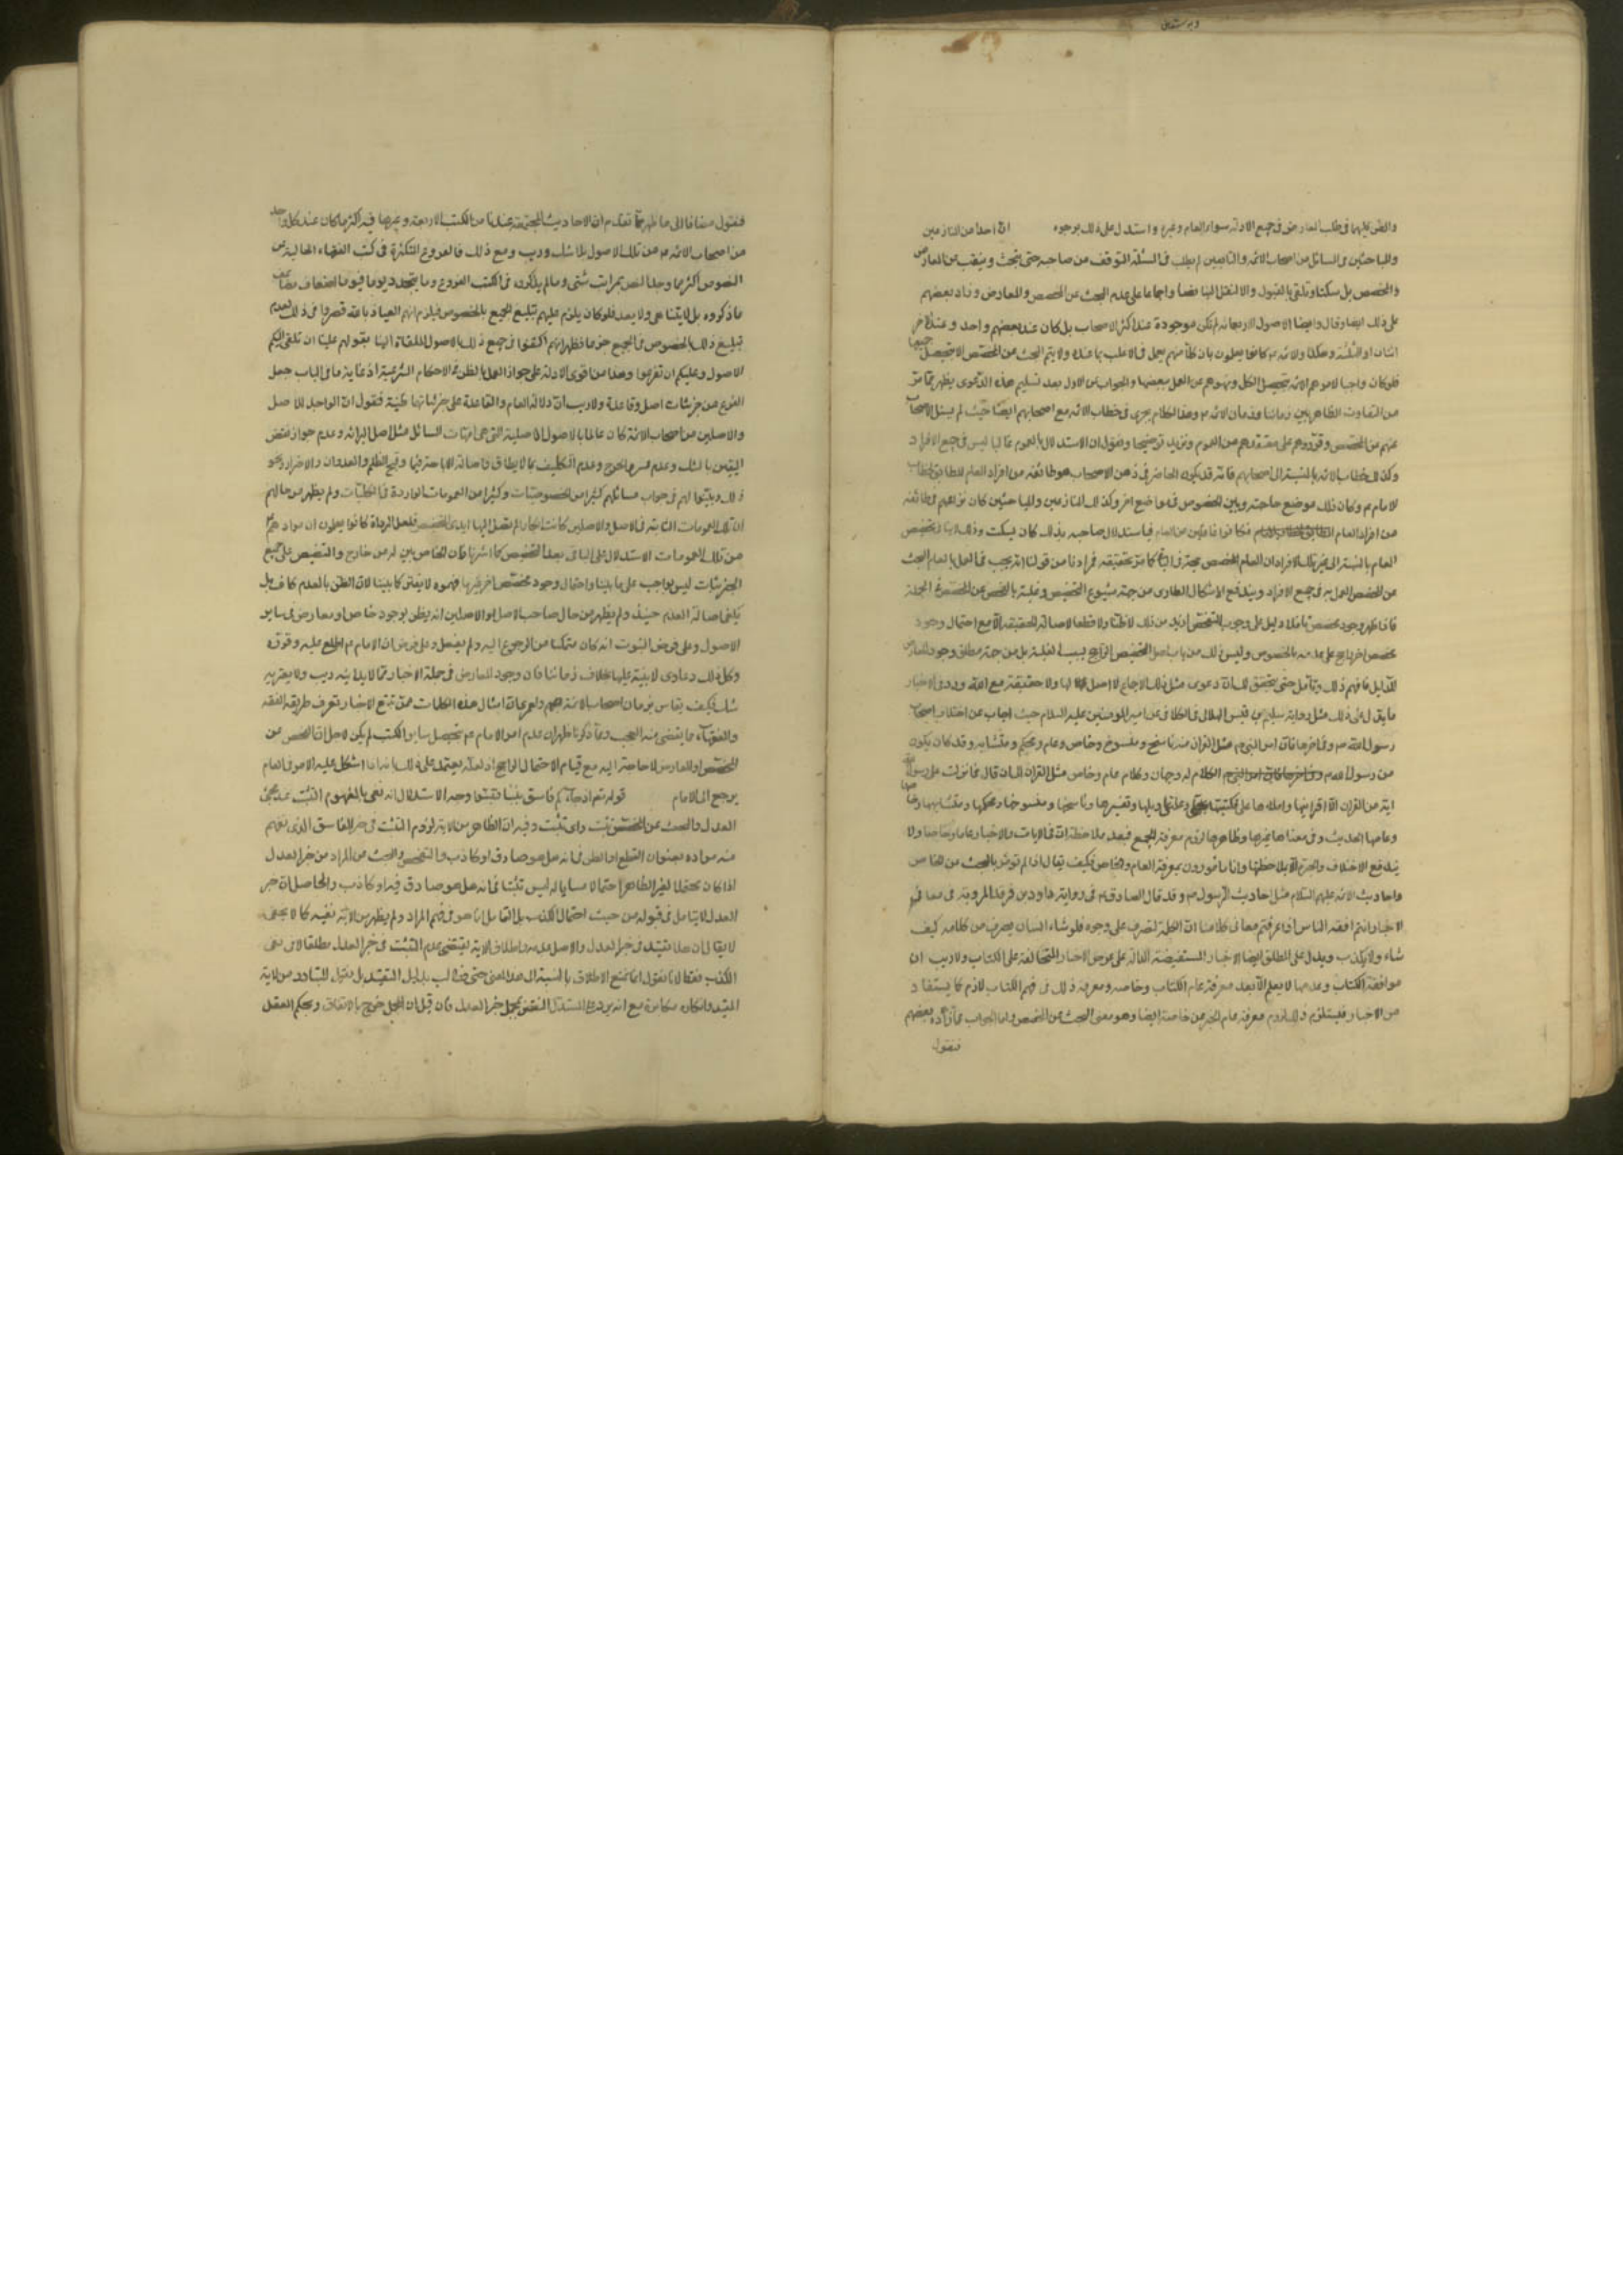 والظن كليهما في طلب المعارض في جميع الادلة سواء العام وغيره واستدل على ذلك بوجوه ان احدا من المنازعين
والمباحثين في المسائل من اصحاب الائمة والتابعين لم يطلب في المسئلة التوقف من صاحبه حتى يبحث وينقب عن المعارض
والمخصص بل سكتا وتلقى بالقبول والا لنقل الينا فصار اجماعا على عدم البحث عن المخصص والمعارض وزاد بعضهم
على ذلك ايضا وقال وايضا الاصول الاربعمائة لم تكن موجودة عند اكثر الاصحاب بل كان عند بعضهم واحد وعند الاخر
اثنان او الثلثة وهكذا والائمة ع كانوا يعلمون بان كلا منهم يعمل في الاغلب بما عنده ولا يتم البحث عن المخصص الا بتحصيل جميعها
فلو كان واجبا لامرهم الائمة بتحصيل الكل ونهوهم عن العمل ببعضها والجواب عن الاول بعد تسليم هذه الدعوى يظهر مما مر
من التفاوت الظاهر بين زماننا وزمان الائمة ع وهذا الكلام يجري في خطاب الائمة مع اصحابهم ايضا حيث لم يسئل الاصحاب
عنهم عن المخصص وقرروهم على معتقدهم من العموم ونزيد توضيحا ونقول ان الاستدلال بالعموم غالبا ليس في جميع الافراد
وكذلك خطاب الائمة بالنسبة الى اصحابهم فانه قد يكون الحاضر في ذهن الاصحاب هو طائفة من افراد العام المطابق لخطاب
الامام ع وكان ذلك موضع حاجته وبين المخصوص في مواضع اخر وكذلك المنازعين والمباحثين كان نزاعهم في طائفة
من افراد العام فكانوا غافلين عن العام فباستدلال صاحبه بذلك كان يسكت وذلك لا ينافي تخصيص
العام بالنسبة الى غير تلك الافراد ان العام المخصص حجة في الباقي كما مر تحقيقه فمرادنا من قولنا انه يجب في العمل بالعام البحث
عن المخصص العمل به في جميع الافراد ويندفع الاشكال الطاري من جهة شيوع التخصيص وغلبته بالفحص عن المخصص في الجملة
فاذا ظهر وجود مخصص ما فلا دليل على وجوب التفحص ازيد من ذلك لا ظنا ولا قطعا لاصالة الحقيقة الا مع احتمال وجود
مخصص اخر راجح على عدمه بالخصوص وليس ذلك من باب اصل التخصيص الراجح بسبب الغلبة بل من جهة مطلق وجود المعارض
للدليل فافهم ذلك وتأمل حتى يتحقق لك ان دعوى مثل ذلك الاجماع لا اصل لها ولا حقيقة مع انه ورد في الاخبار
ما يدل على ذلك مثل رواية سليم بن قيس الهلالي في الكافي عن امير المؤمنين عليه السلام حيث اجاب عن اختلاف اصحاب
رسول الله ص وفي اخرها فان امر النبي ص مثل القران منه ناسخ ومنسوخ وخاص وعام ومحكم ومتشابه وقد كان يكون
من رسول الله ص الكلام له وجهان وكلام عام وخاص مثل القران الى ان قال فما نزلت على رسول الله
اية من القران الا اقرأنيها واملاها على فكتبتها بخطي وعلمني تاويلها وتفسيرها وناسخها ومنسوخها ومحكمها ومتشابهها وخاصها
وعامها الحديث وفي معناها غيرها وظاهرها لزوم معرفة الجميع فبعد ملاحظة ان في الايات والاخبار عاما وخاصا ولا
يندفع الاختلاف والحيرة الا بملاحظتها وانا مامورون بمعرفة العام والخاص فكيف يقال انا لم نؤمر بالبحث عن الخاص
واحاديث الائمة عليهم السلام مثل احاديث الرسول ص وقد قال الصادق ع في رواية داود بن فرقد المروية في معاني
الاخبار انتم افقه الناس اذا عرفتم معاني كلامنا ان الكلمة لتصرف على وجوه فلو شاء انسان يصرف من كلامه كيف
شاء ولا يكذب ويدل على المطلق ايضا الاخبار المستفيضة الدالة على عرض الاخبار المتخالفة على الكتاب ولا ريب ان
موافقة الكتاب وعدمها لا يعلم الا بعد معرفة عام الكتاب وخاصه ومعرفة ذلك في فهم الكتاب لازم كما يستفاد
من الاخبار فيستلزم ذلك لزوم معرفة عام الخبر من خاصه ايضا وهو معنى البحث عن المخصص واما الجواب عما زاده بعضهم
فنقول
فنقول مضافا الى ما ظهر مما تقدم ان الاحاديث المجتمعة عندنا من الكتب الاربعة وغيرها فيه اكثر مما كان عند كل واحد
من اصحاب الائمة ع من تلك الاصول بلا شك وريب ومع ذلك فالفروع المتكثرة في كتب الفقهاء الخالية عن
النصوص اكثر مما وجد النص بمراتب شتى وما لم يذكروه في الكتب الفروع وما يتجدد يوما فيوما اضعاف مضاعف
ما ذكروه بل لا يتناهى ولا يعد فلو كان يلزم عليهم تبليغ الجميع بالخصوص فيلزم انهم العياذ بالله قصروا في ذلك لعدم
تبليغ ذلك بالخصوص في الجميع جزما فظهر انهم اكتفوا في جميع ذلك بالاصول الملقاة الينا بقولهم علينا ان نلقي اليكم
الاصول وعليكم ان تفرعوا وهذا من اقوى الادلة على جواز العمل بالظن في الاحكام الشرعية اذ غاية ما في الباب جعل
الفرع من جزئيات اصل وقاعدة ولا ريب ان دلالة العام والقاعدة على جزئياتها ظنية فنقول ان الواجد للاصل
والاصلين من اصحاب الائمة كان عالما بالاصول الاصلية التي هي امهات المسائل مثل اصل البرائة وعدم جواز نقض
اليقين بالشك وعدم العسر والحرج وعدم التكليف بما لا يطاق واصالة الاباحة وقبح الظلم والعدوان والاضرار ونحو
ذلك وبينوا لهم في جواب مسائلهم كثيرا من الخصوصيات وكثيرا من العمومات الواردة في الكليات ولم يظهر من حالهم
ان تلك العمومات الثابتة في الاصل والاصلين كانت لم تصل اليها ايدي التخصيص فلعل الرواة كانوا يعلمون ان مواد
من تلك العمومات الاستدلال على الباقي بعد التخصيص كما اشرنا فان الخاص بين له من خارج والتنصيص على جميع
الجزئيات ليس بواجب على ما بينا واحتمال وجود مخصص اخر غير ما فهموه لا يضر كما بينا لان الظن بالعدم كاف بل
يكفي اصالة العدم حينئذ ولم يظهر من حال صاحب الاصل والاصلين انه يظن بوجود خاص او معارض في ساير
الاصول وعلى فرض الثبوت انه كان متمكنا من الرجوع اليه ولم يفعل وعلى فرض ان الامام ع اطلع عليه وقرره
وكل ذلك دعاوى لا بينة عليها بخلاف زماننا فان وجود المعارض في جملة الاخبار مما لا يدانيه ريب ولا يعتريه
شك فكيف يقاس بزمان اصحاب الائمة ولعمري ان امثال هذه الكلمات ممن تتبع الاخبار وتعرف طريقة الفقه
والفقهاء مما يقتضى منه العجب ومما ذكرنا ظهر ان عدم امر الامام ع بتحصيل ساير الكتب لم يكن لاجل ان الفحص عن
المخصص او المعارض لا حاجة اليه مع قيام الاحتمال الراجح اذ لعله يعتمد على ذلك بانه اذا اشكل عليه الامر في العام
يرجع الى الامام قوله تعالى ان جاءكم فاسق بنبأ فتبينوا وجه الاستدلال انه نفى بالمفهوم التثبت عند مجئ
العدل والبحث عن المخصص تثبت واي تثبت وفيه ان الظاهر من الاية لزوم التثبت في خبر الفاسق الذي نفهم
منه مراده بعنوان القطع او الظن في انه هل هو صادق او كاذب والتفحص والبحث عن المراد من خبر العدل
اذا كان محتملا لغير الظاهر احتمالا مساويا له ليس تثبتا في انه هل هو صادق فيه او كاذب والحاصل ان خبر
العدل لا يتامل في قبوله من حيث احتمال الكذب بل التامل انما هو في فهم المراد ولم يظهر من الاية نفيه كما لا يخفى
لا يقال ان هذا تقييد في خبر العدل والاصل عدمه واطلاق الاية يقتضي عدم التثبت في خبر العدل مطلقا لا في نفي
الكذب فقط لانا نقول انا نمنع الاطلاق بالنسبة الى هذا المعنى حتى نطالب بدليل التقييد بل نقول المتبادر من الاية
المقيد وانكاره مكابرة مع انه يرد على المستدل النقض بمجمل خبر العدل فان قيل ان المجمل خرج بالاتفاق وبحكم العقل